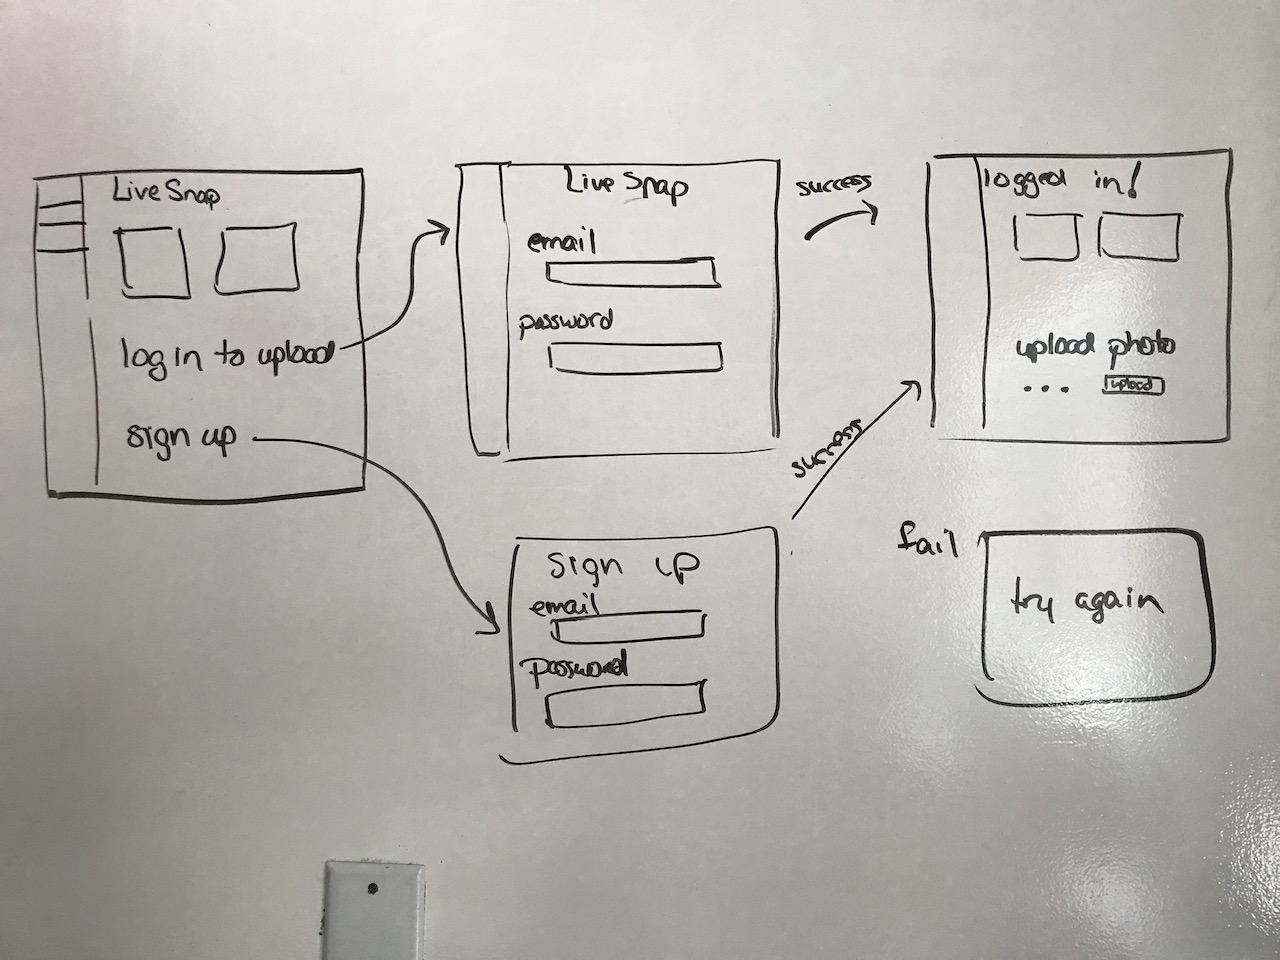 Live Snap
log in to upload
sign up
Live Snap
email
password
success
logged in!
upload photo
... upload
success
sign up
email
password
fail
try again